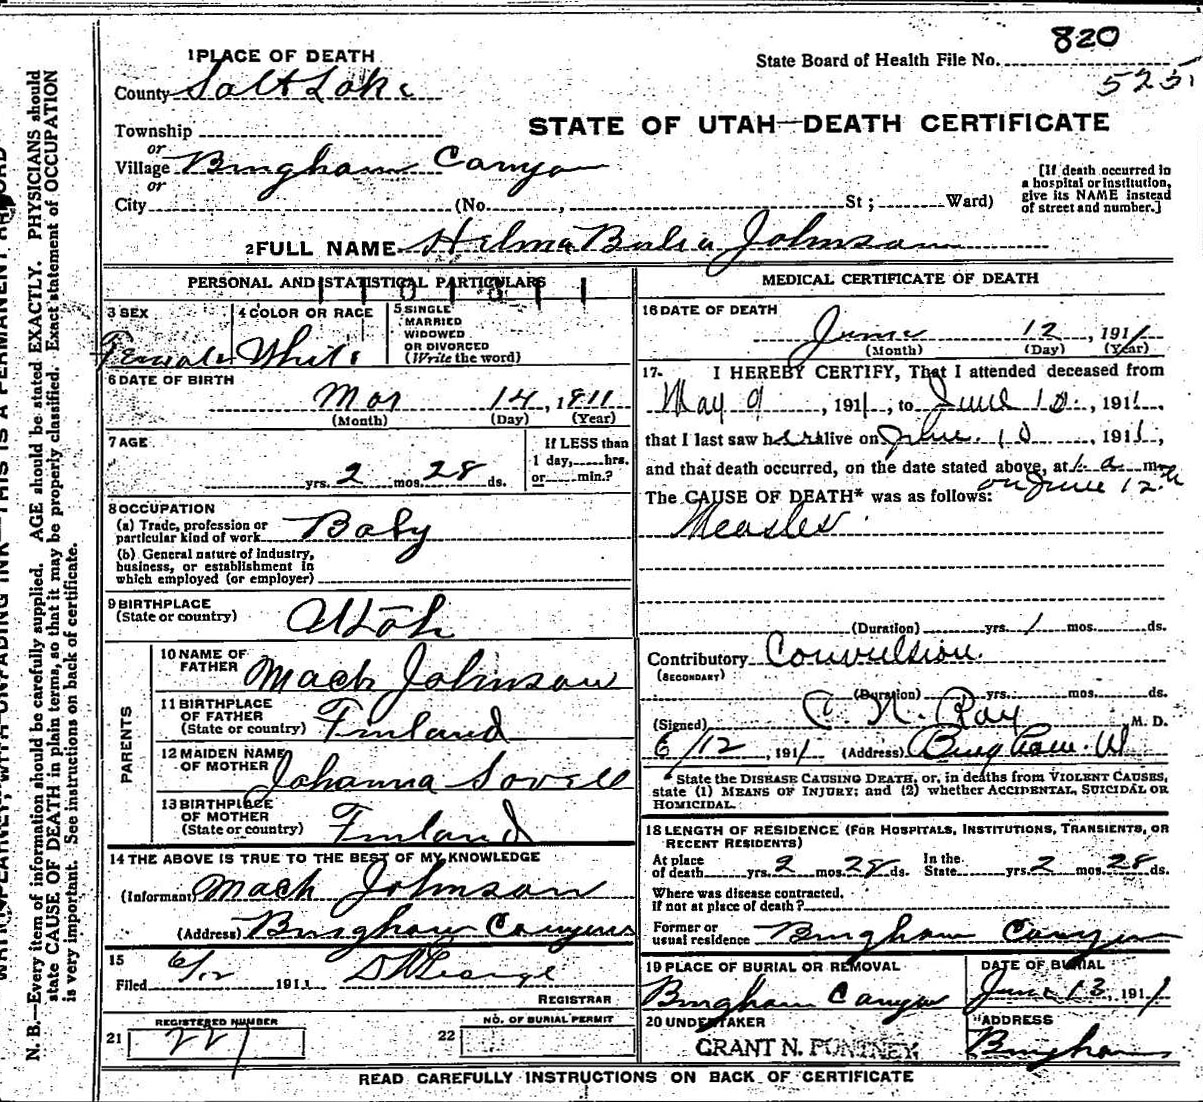 820
1 PLACE OF DEATH
State Board of Health File No.
525
County Salt Lake
STATE OF UTAH—DEATH CERTIFICATE
Township
or
Village Bingham Canyon
or
City (No. , St ; Ward)
[If death occurred in a hospital or institution, give its NAME instead of street and number.]
2 FULL NAME Hilma Johnson
PERSONAL AND STATISTICAL PARTICULARS
3 SEX
Female
4 COLOR OR RACE
White
5 SINGLE
MARRIED
WIDOWED
OR DIVORCED
(Write the word)
6 DATE OF BIRTH
Mar 14, 1911
(Month) (Day) (Year)
7 AGE
yrs. 2 mos. 28 ds.
If LESS than
1 day, hrs.
or min.?
8 OCCUPATION
(a) Trade, profession or
particular kind of work Baby
(b) General nature of industry,
business, or establishment in
which employed (or employer)
9 BIRTHPLACE
(State or country)
PARENTS
10 NAME OF
FATHER Mach Johnson
11 BIRTHPLACE
OF FATHER
(State or country) Finland
12 MAIDEN NAME
OF MOTHER Johanna
13 BIRTHPLACE
OF MOTHER
(State or country) Finland
14 THE ABOVE IS TRUE TO THE BEST OF MY KNOWLEDGE
(Informant) Mach Johnson
(Address) Bingham Canyon
15
Filed 6/12 1911
REGISTRAR
21 REGISTERED NUMBER
227
22 NO. OF BURIAL PERMIT
MEDICAL CERTIFICATE OF DEATH
16 DATE OF DEATH
June 12, 1911
(Month) (Day) (Year)
17. I HEREBY CERTIFY, That I attended deceased from
May 9, 1911, to June 10, 1911,
that I last saw her alive on June 10, 1911,
and that death occurred, on the date stated above, at 1 a m.
on June 12th
The CAUSE OF DEATH* was as follows:
Measles
(Duration) yrs. 1 mos. ds.
Contributory Convulsion.
(SECONDARY)
(Duration) yrs. mos. ds.
(Signed) C. N. Ray M. D.
6/12, 1911 (Address) Bingham. U
*State the DISEASE CAUSING DEATH, or, in deaths from VIOLENT CAUSES,
state (1) MEANS OF INJURY; and (2) whether ACCIDENTAL, SUICIDAL OR
HOMICIDAL.
18 LENGTH OF RESIDENCE (FOR HOSPITALS, INSTITUTIONS, TRANSIENTS, OR
RECENT RESIDENTS)
At place
of death yrs. 2 mos. 28 ds.
In the
State yrs. 2 mos. 28 ds.
Where was disease contracted,
if not at place of death?
Former or
usual residence Bingham Canyon
19 PLACE OF BURIAL OR REMOVAL
Bingham Canyon
DATE OF BURIAL
June 13, 1911
20 UNDERTAKER
GRANT N.
ADDRESS
Bingham
READ CAREFULLY INSTRUCTIONS ON BACK OF CERTIFICATE
N. B.—Every item of information should be carefully supplied. AGE should be stated EXACTLY. PHYSICIANS should
state CAUSE OF DEATH in plain terms, so that it may be properly classified. Exact statement of OCCUPATION
is very important. See instructions on back of certificate.